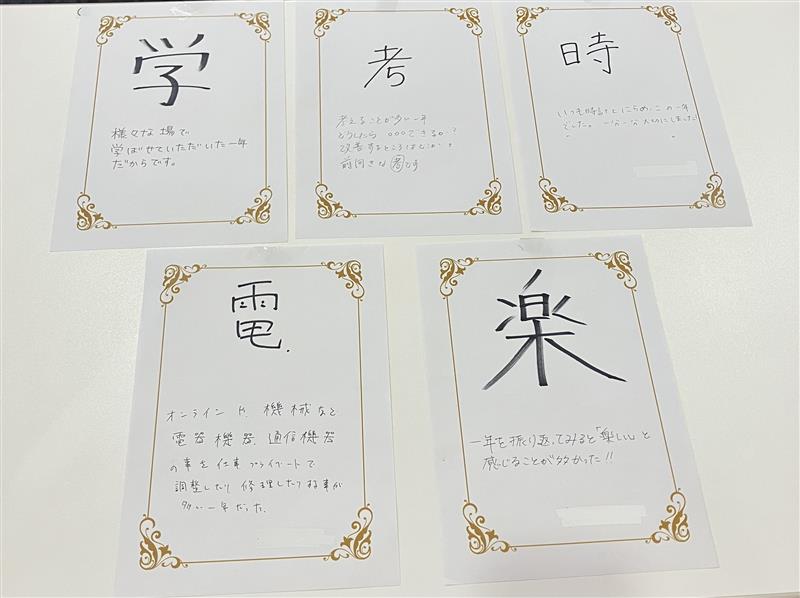 学
様々な場で
学ばせていただいた一年
だからです。
考
考えることが多い一年
どうしたら ○○○できる?
改善するところはないか?
前向きな考です
時
いつも時計とにらめっこの一年
でした。一分一分大切にしました
電.
オンラインや、機械など
電器機器、通信機器
の事を仕事プライベートで
調整したり修理したりする事が
多い一年だった.
楽
一年を振り返ってみると「楽しい」と
感じることが多かった!!